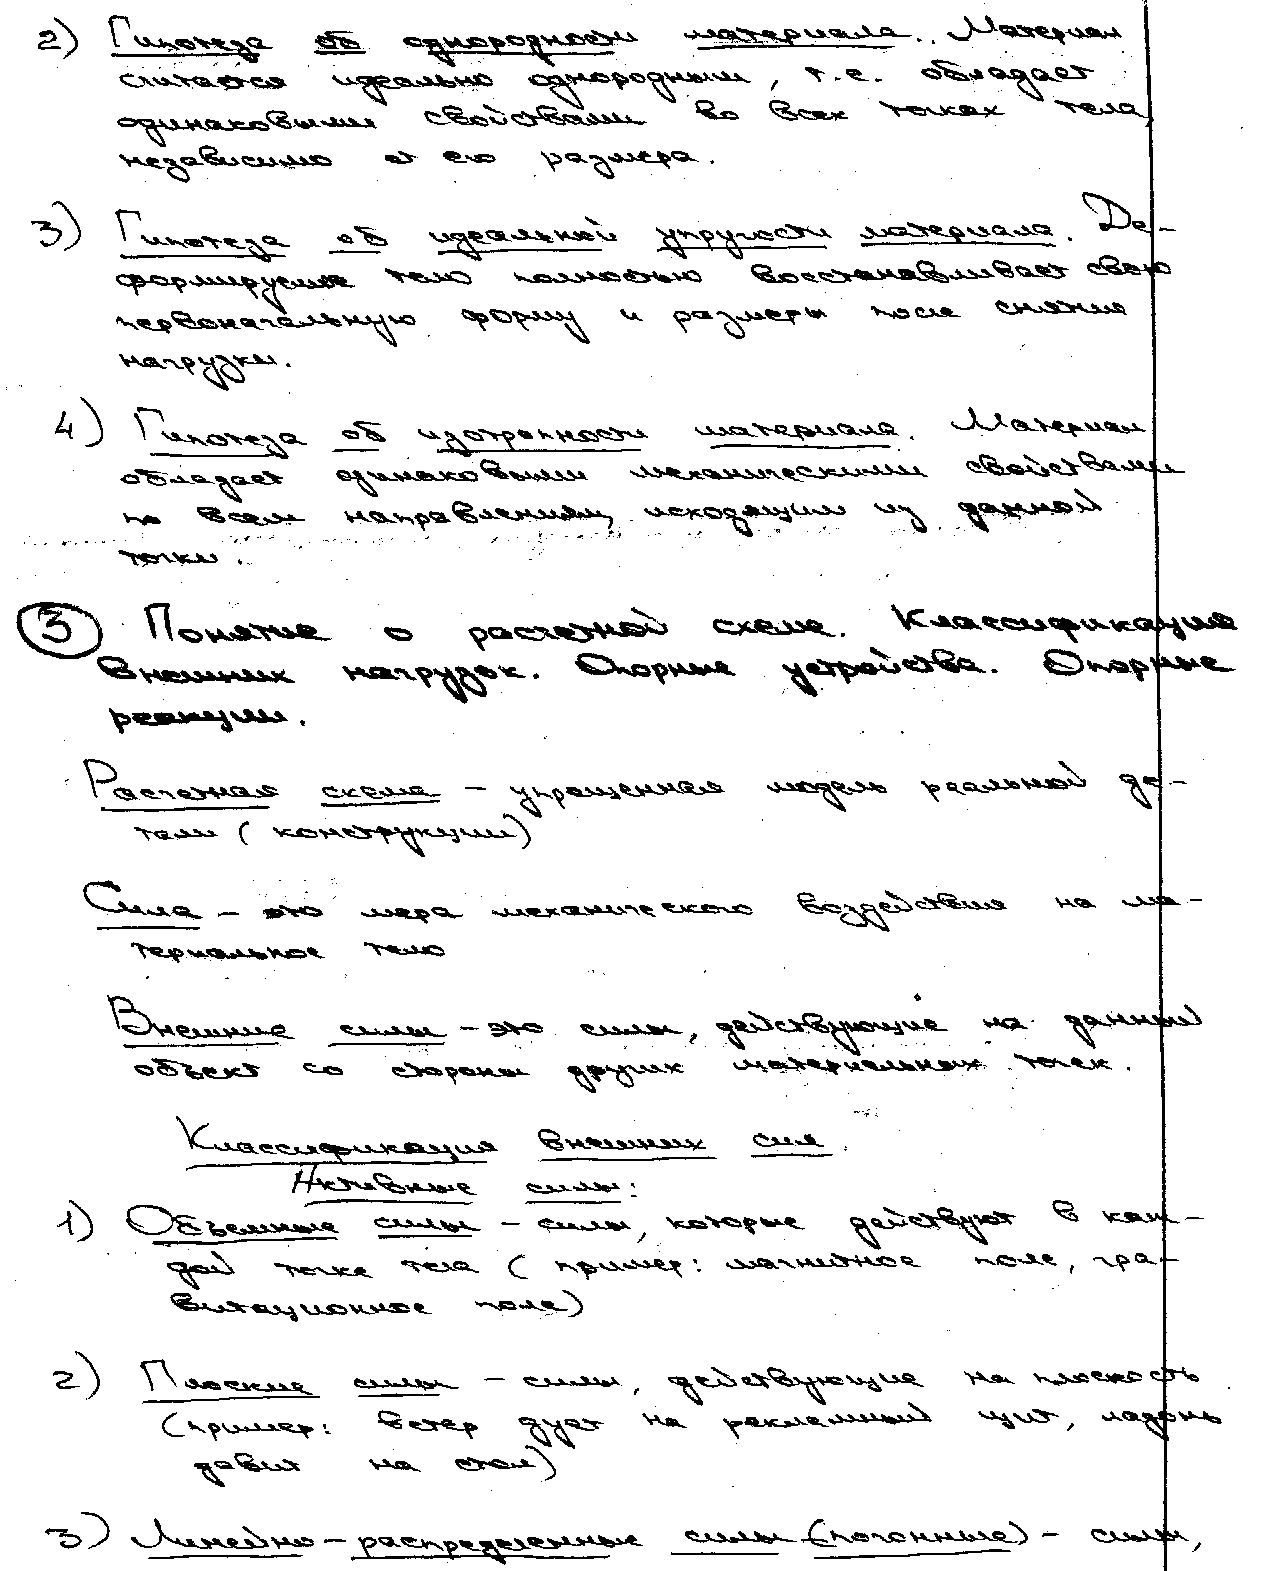 2) Гипотеза об однородности материала. Материал
считается идеально однородным, т.е. обладает
одинаковыми свойствами во всех точках тела,
независимо от его размера.
3) Гипотеза об идеальной упругости материала. Де-
формируемое тело полностью восстанавливает свою
первоначальную форму и размеры после снятия
нагрузки.
4) Гипотеза об изотропности материала. Материал
обладает одинаковыми механическими свойствами
по всем направлениям, исходящим из данной
точки.
3 Понятие о расчетной схеме. Классификация
внешних нагрузок. Опорные устройства. Опорные
реакции.
Расчетная схема - упрощенная модель реальной де-
тали (конструкции)
Сила - это мера механического воздействия на ма-
териальное тело
Внешние силы - это силы, действующие на данный
объект со стороны других материальных точек.
Классификация внешних сил.
Активные силы:
1) Объемные силы - силы, которые действуют в каж-
дой точке тела (пример: магнитное поле, гра-
витационное поле)
2) Плоские силы - силы, действующие на плоскость
(пример: ветер дует на рекламный щит, ладонь
давит на стол)
3) Линейно-распределенные силы (погонные) - силы,